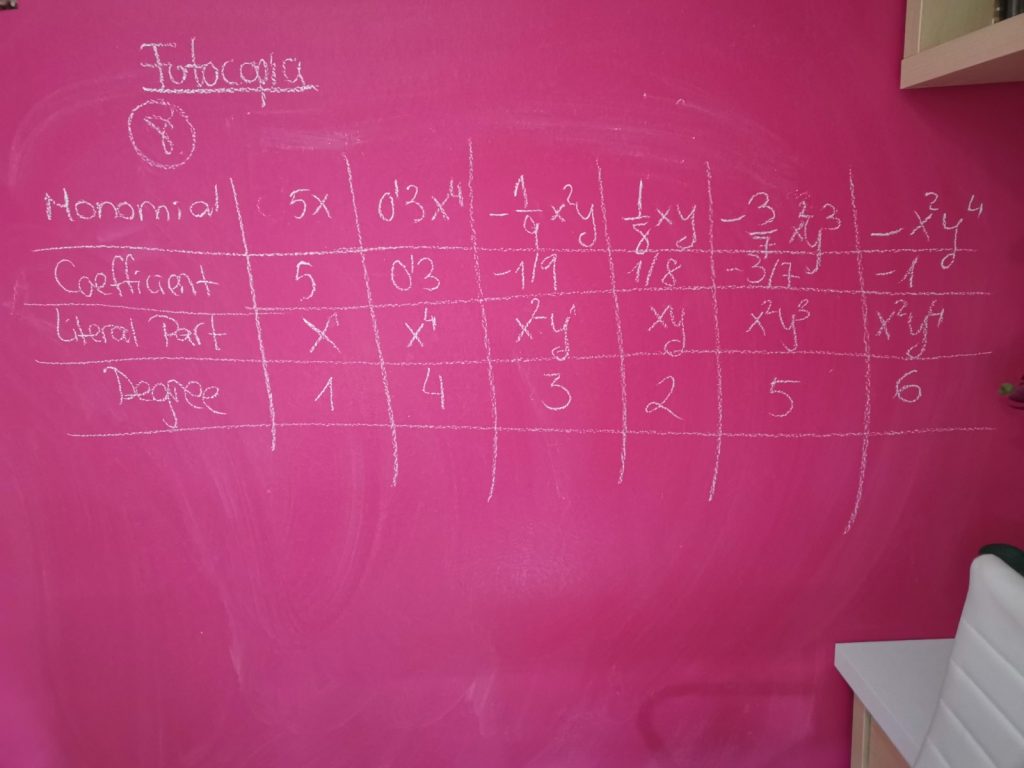 Fotocopia
8
Monomial 5x 0'3x⁴ -1/9 x²y 1/8 xy -3/7 x²y³ -x²y⁴
Coefficient 5 0'3 -1/9 1/8 -3/7 -1
Literal Part x¹ x⁴ x²y¹ xy x²y³ x²y⁴
Degree 1 4 3 2 5 6